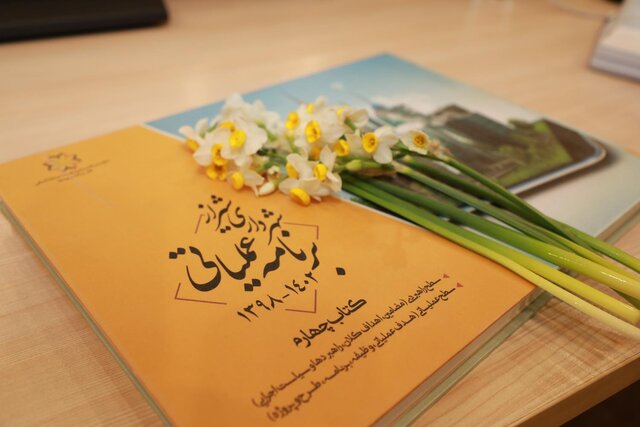 برنامه عملیاتی
شهرداری شیراز
۱۳۹۸-۱۴۰۲
کتاب چهارم
سطح راهبردی (مضامین، اهداف کلان، راهبردها و سیاست اجرایی)
سطح عملیاتی (هدف عملیاتی، وظیفه، برنامه، طرح و پروژه)